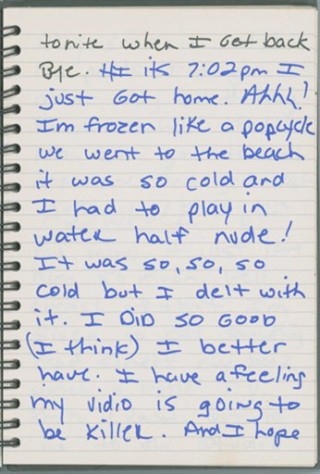 tonite when I Get back
Bye. Hi its 7:02pm I
just Got home. Ahhh!
Im frozen like a popcycle
we went to the beach
it was so cold and
I had to play in
water half nude!
It was so, so, so
cold but I delt with
it. I DiD so GooD
(I think) I better
have. I have a feeling
my vidio is going to
be KilleR. And I hope